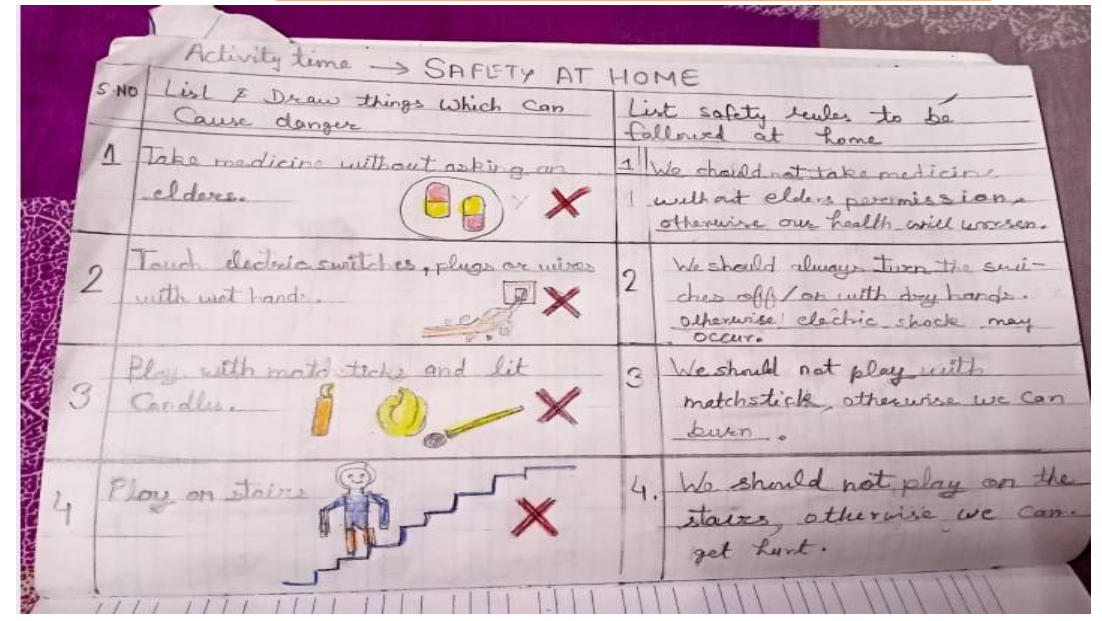 Activity time → SAFETY AT HOME
S.NO
List & Draw things which can
Cause danger
List safety rules to be
followed at home
1
Take medicine without asking an
elders.
1
We should not take medicine
without elders permission,
otherwise our health will worsen.
2
Touch electric switches, plugs or wires
with wet hands.
2
We should always turn the swi-
ches off/on with dry hands.
otherwise electric shock may
occur.
3
Play with match ticks and lit
Candles.
3
We should not play with
matchstick, otherwise we can
burn.
4
Play on stairs
4.
We should not play on the
stairs, otherwise we can.
get hurt.